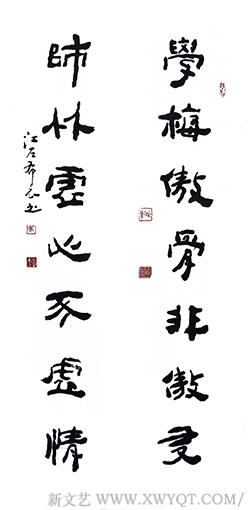 學梅傲骨非傲
師竹虛心不虛情
新文艺 WWW.XWYQT.COM/